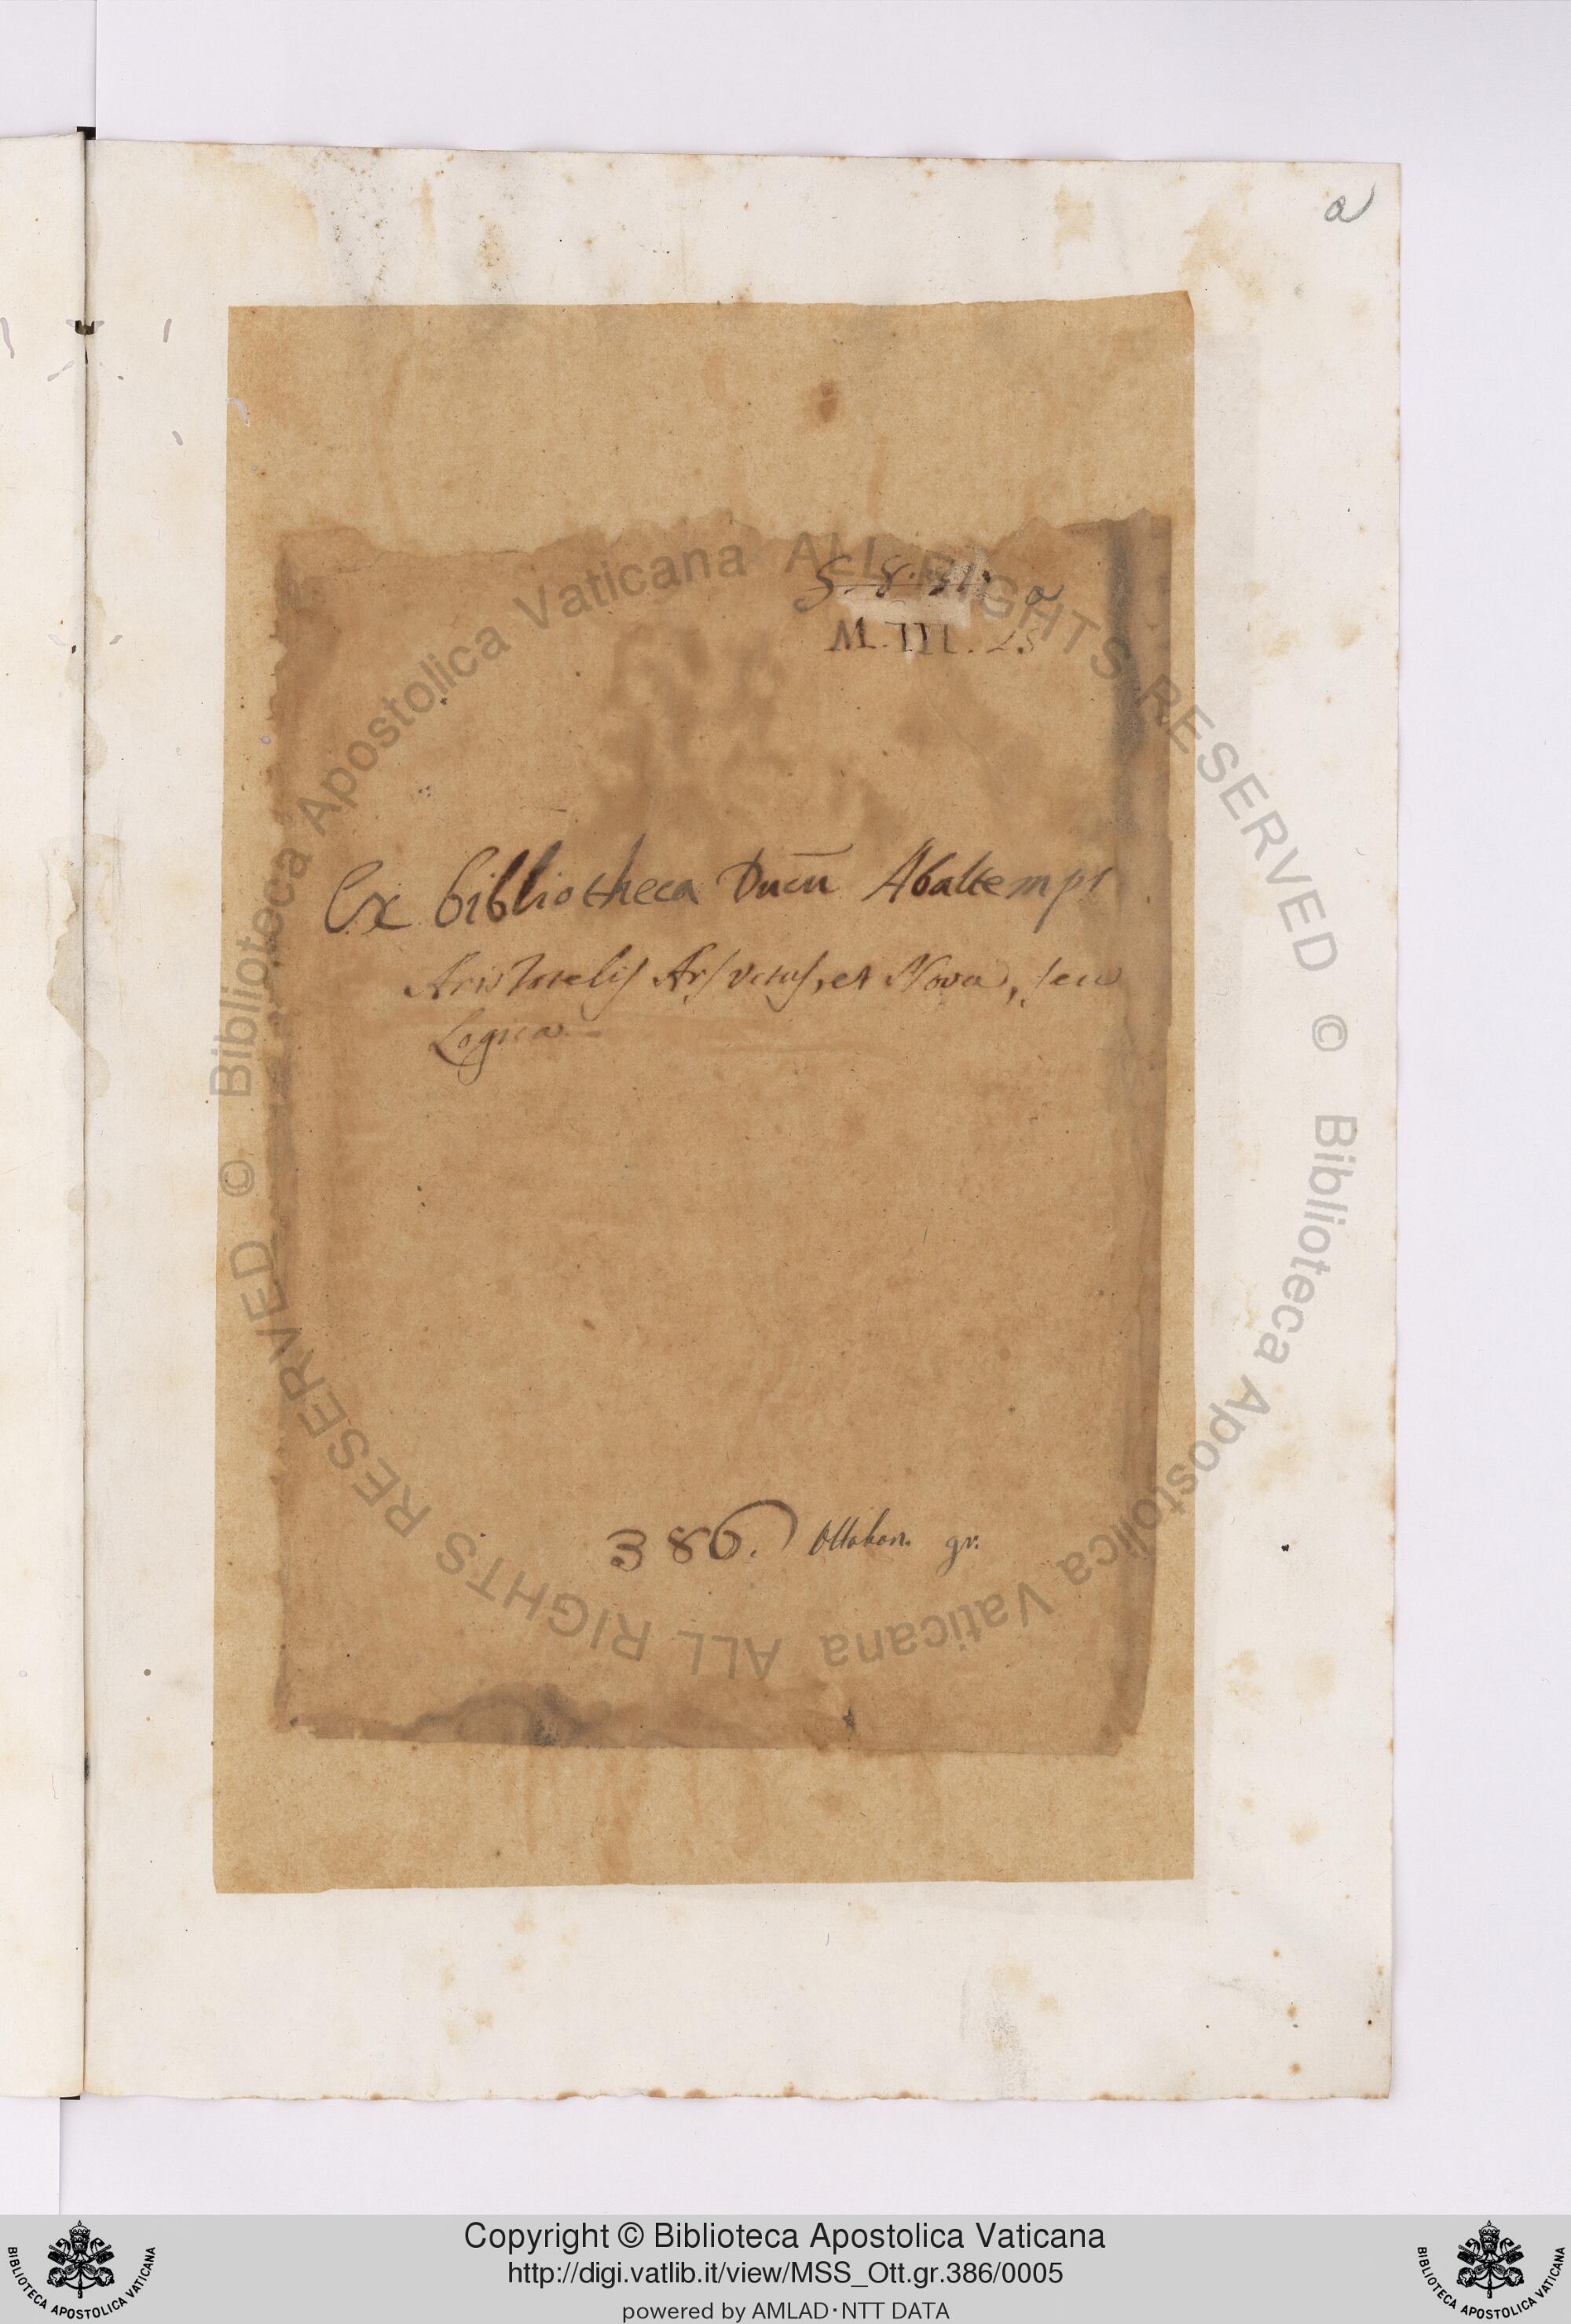 a
S. 8. 31. a
M. III. 25
Ex bibliotheca Ducū Abaltemps
Aristotelis Ars vetus, et Nova, seu
Logica
386. Ottobon. gr.
© Biblioteca Apostolica Vaticana ALL RIGHTS RESERVED
© Biblioteca Apostolica Vaticana ALL RIGHTS RESERVED
Copyright © Biblioteca Apostolica Vaticana
http://digi.vatlib.it/view/MSS_Ott.gr.386/0005
powered by AMLAD·NTT DATA
BIBLIOTECA APOSTOLICA VATICANA
BIBLIOTECA APOSTOLICA VATICANA